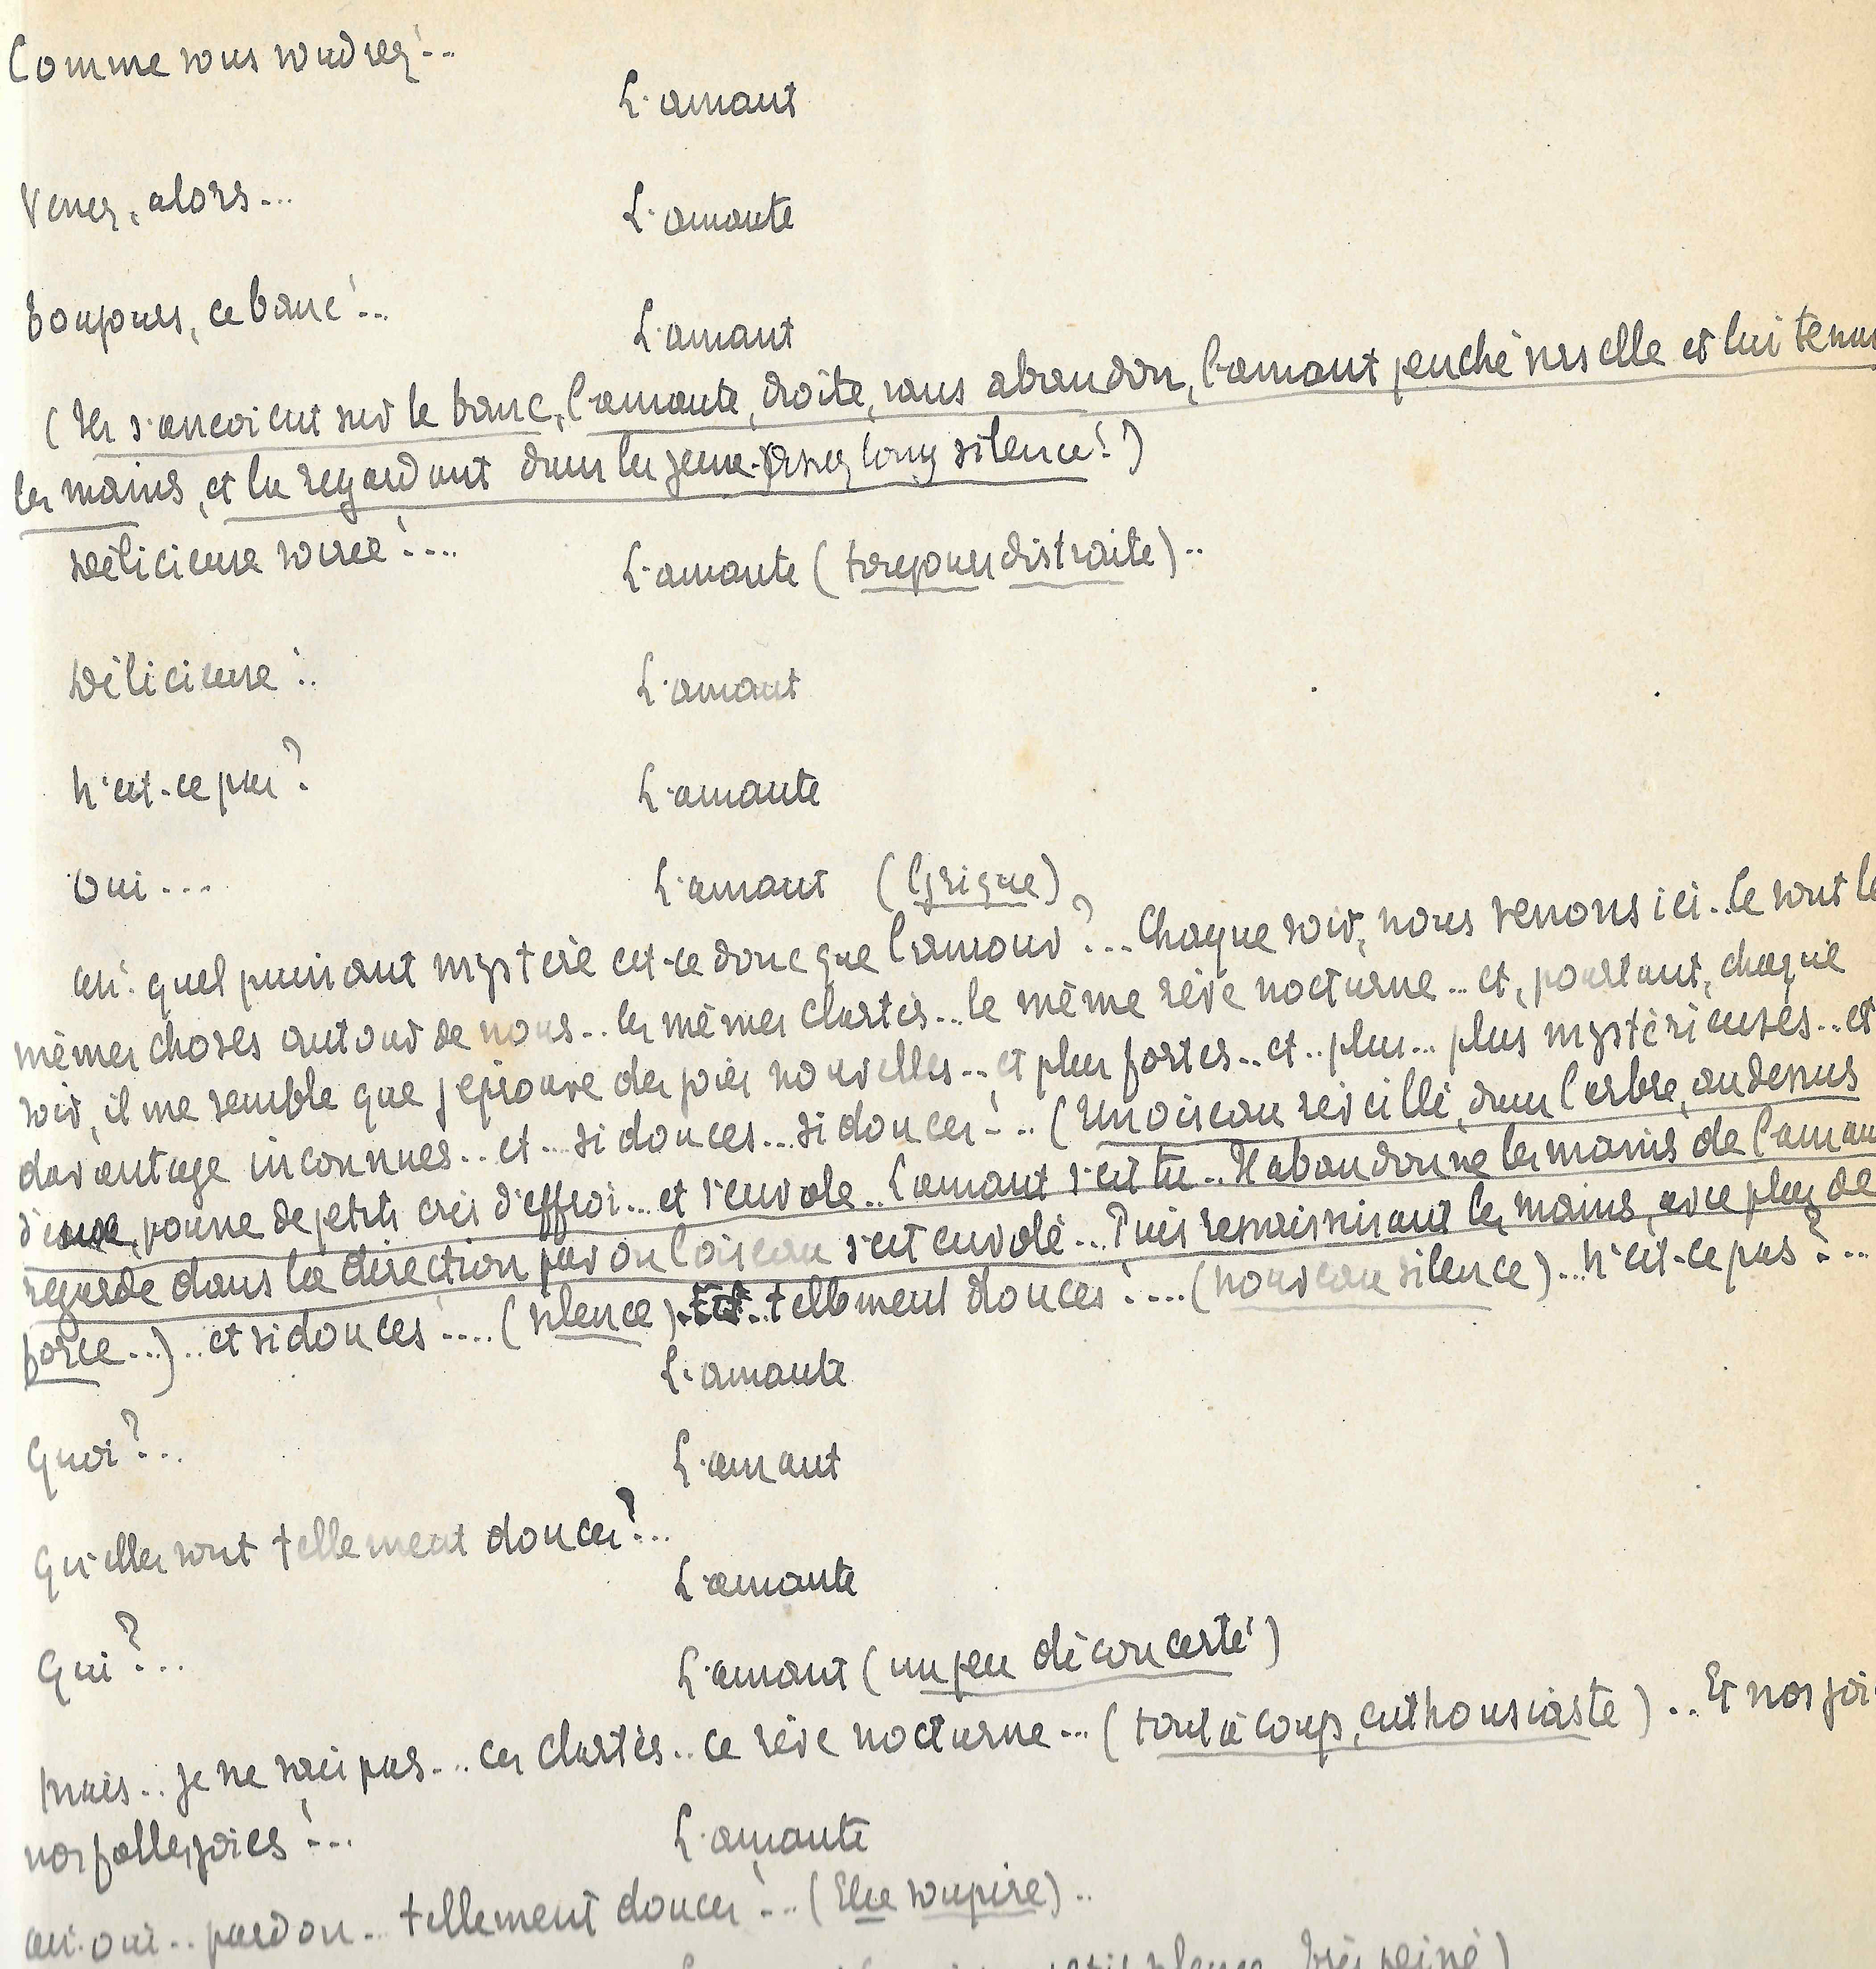 Comme vous voudrez!..
L'amant
Venez, alors...
L'amante
Toujours, ce banc!..
L'amant
(Ils s'assoient sur le banc, l'amante, droite, sans abandon, l'amant penché vers elle et lui tenant
les mains, et la regardant dans les yeux. Assez long silence!)
Délicieuse soirée!....
L'amante (toujours distraite)..
Délicieuse!..
L'amant
N'est-ce pas?
L'amante
Oui...
L'amant (lyrique)
Ah! quel puissant mystère est-ce donc que l'amour?... Chaque soir, nous venons ici.. Ce sont les
mêmes choses autour de nous... les mêmes clartés... le même rêve nocturne... et, pourtant, chaque
soir, il me semble que j'éprouve des joies nouvelles... et plus fortes.. et.. plus... plus mystérieuses.. et
davantage inconnues.. et... si douces... si douces!... (Un oiseau réveillé, dans l'arbre, au dessus
d'eux, pousse de petits cris d'effroi... et s'envole.. L'amant s'est tu.. Il abandonne les mains de l'amante
regarde dans la direction par où l'oiseau s'est envolé... Puis ressaisissant les mains, avec plus de
force...).. et si douces!.... (silence)... tellement douces!.... (nouveau silence)... N'est-ce pas?...
L'amante
Quoi?...
L'amant
Qu'elles sont tellement douces?...
L'amante
Qui?...
L'amant (un peu déconcerté)
Mais... je ne sais pas... ces clartés.. ce rêve nocturne... (tout à coup, enthousiaste)... Et nos joi
nos folles joies!...
L'amante
Ah! oui.. pardon.. tellement douces!... (Elle soupire)..
silence, très peiné)